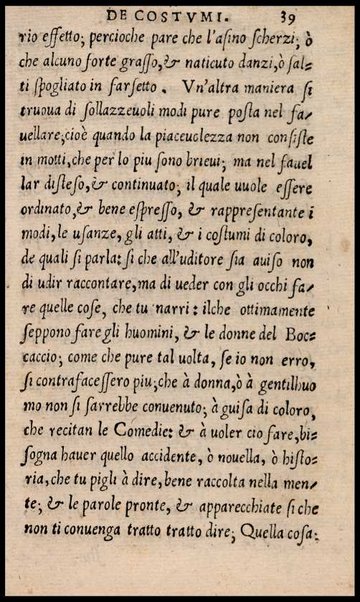 DE COSTVMI. 39
rio effetto; percioche pare che l'asino scherzi; ò
che alcuno forte grasso, & naticuto danzi, ò sal-
ti spogliato in farsetto. Vn'altra maniera si
truoua di sollazzeuoli modi pure posta nel fa-
uellare; cioè quando la piaceuolezza non consiste
in motti, che per lo piu sono brieui; ma nel fauel
lar disteso, & continuato; il quale uuole essere
ordinato, & bene espresso, & rappresentante i
modi, le usanze, gli atti, & i costumi di coloro,
de quali si parla: si che all'uditore sia auiso non
di udir raccontare, ma di ueder con gli occhi fa-
re quelle cose, che tu narri: ilche ottimamente
seppono fare gli huomini, & le donne del Boc-
caccio; come che pure tal uolta, se io non erro,
si contrafacessero piu; che à donna, ò à gentilhuo
mo non si sarrebbe conuenuto; à guisa di coloro,
che recitan le Comedie: & à uoler cio fare, bi-
sogna hauer quello accidente, ò nouella, ò histo-
ria, che tu pigli à dire, bene raccolta nella men-
te; & le parole pronte, & apparecchiate si che
non ti conuenga tratto tratto dire; Quella cosa: